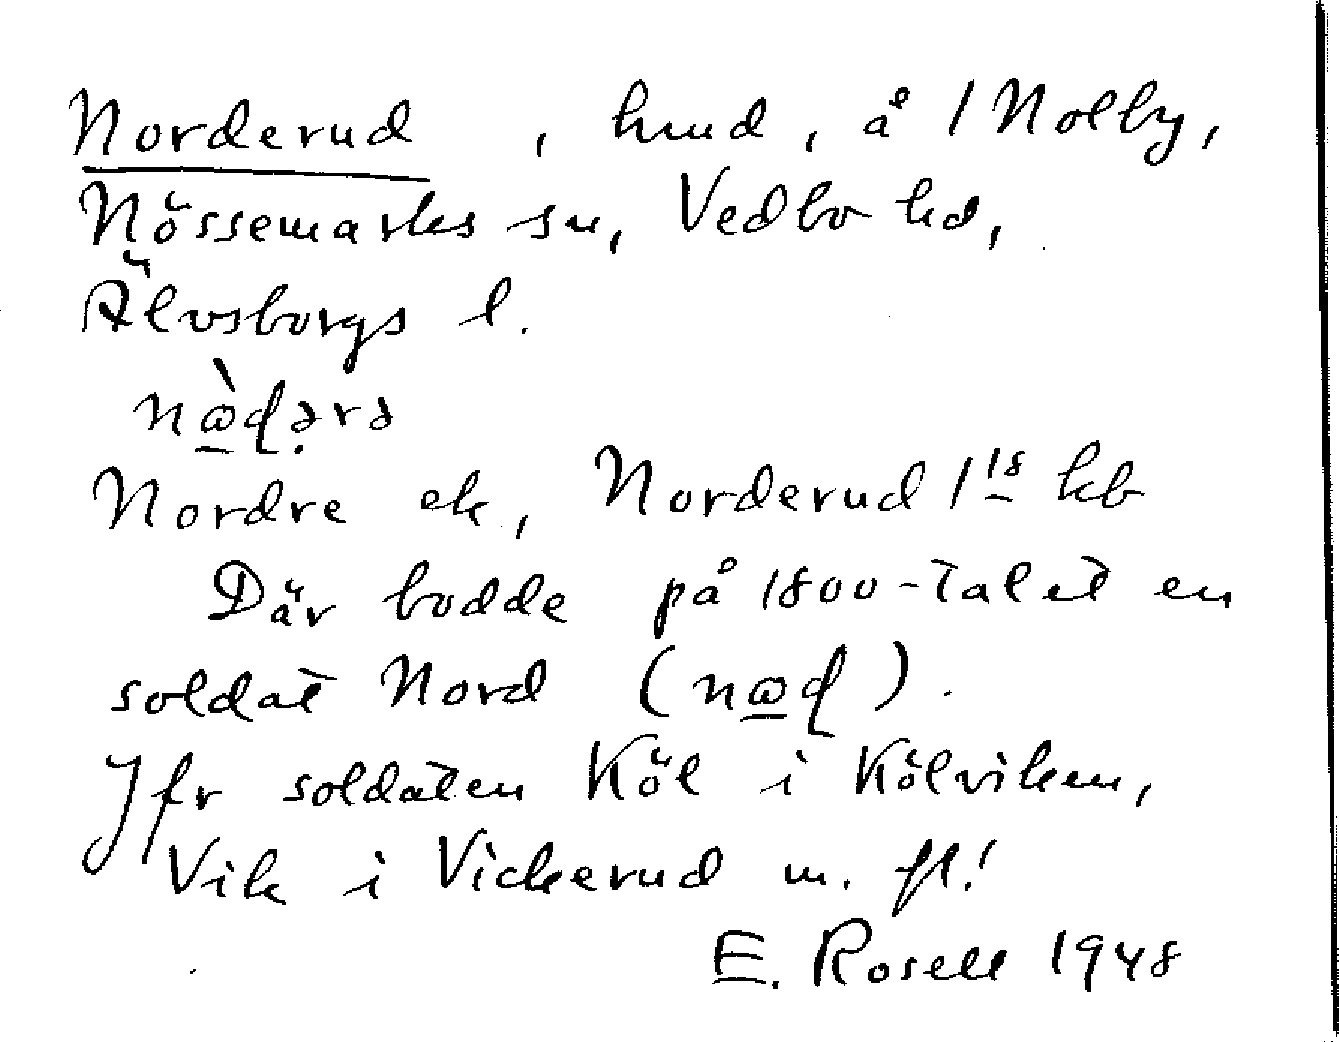 Norderud, hmd, å 1 Nolby,
Nössemarks sn, Vedbo hd,
Älvsborgs l.
Nordre ek, Norderud 1 1/8 kb
Där bodde på 1800-talet en
soldat Nord
Jfr soldaten Köl i Kölviken,
Vik i Vickerud m. fl!
E. Rosell 1948